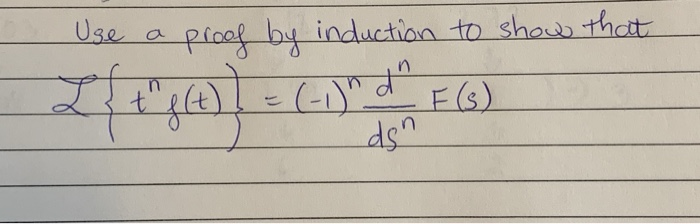 Use a proof by induction to show that
ℒ{tⁿf(t)} = (-1)ⁿ dⁿ/dsⁿ F(s)